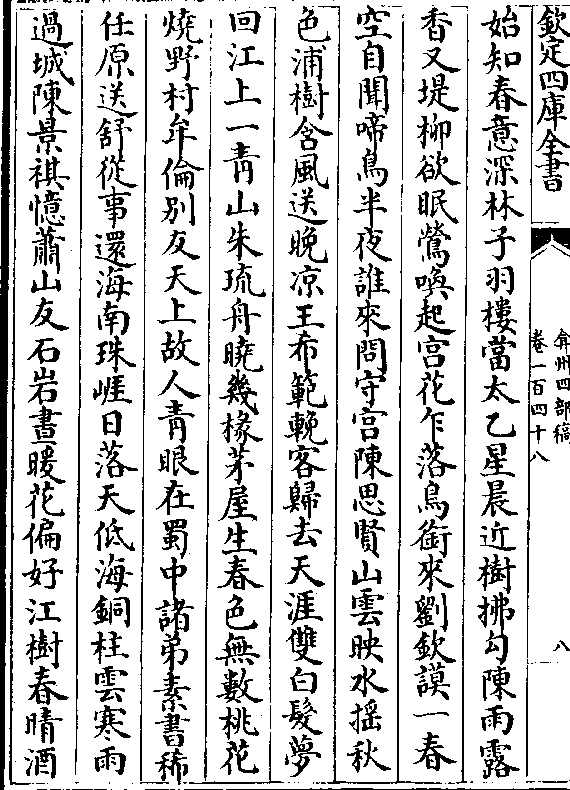 欽定四庫全書
弇州四部稿
卷一百四十八
八
始知春意深林子羽樓當太乙星晨近樹拂勾陳雨露
香又堤柳欲眠鶯喚起宫花乍落鳥銜來劉欽謨一春
空自聞啼鳥半夜誰來問守宫陳思賢山雲映水摇秋
色浦樹含風送晚凉王布範輓客歸去天涯雙白髮夢
回江上一青山朱琉舟曉幾椽茅屋生春色無數桃花
燒野村牟倫别友天上故人青眼在蜀中諸弟素書稀
任原送舒從事還海南珠崕日落天低海銅柱雲寒雨
過城陳景祺憶蕭山友石岩晝暖花偏好江樹春晴酒